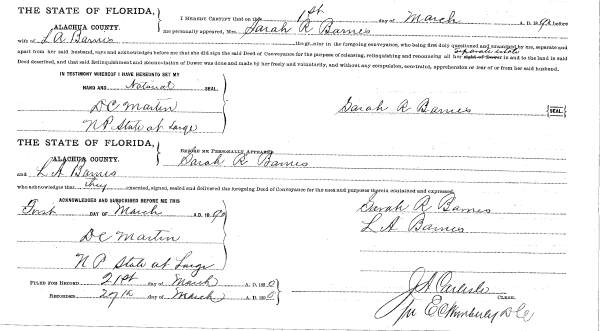 THE STATE OF FLORIDA,
ALACHUA COUNTY.
I HEREBY CERTIFY that on this 1st day of March A. D. 1890 before
me personally appeared, Mrs. Sarah R Barnes
wife of L A Barnes the grantor in the foregoing conveyance, who being first duly questioned and examined by me, separate and
apart from her said husband, says and acknowledges before me that she did sign the said Deed of Conveyance for the purpose of releasing, relinquishing and renouncing all her right of Dower separate estate in and to the land in said
Deed described, and that said Relinquishment and Renunciation of Dower was done and made by her freely and voluntarily, and without any compulsion, constraint, apprehension or fear of or from her said husband.
IN TESTIMONY WHEREOF I HAVE HEREUNTO SET MY
HAND AND Notarial SEAL.
D C Martin
N P State at Large
Sarah R Barnes {SEAL}
THE STATE OF FLORIDA,
ALACHUA COUNTY.
BEFORE ME PERSONALLY APPEARED
Sarah R Barnes
and L A Barnes
who acknowledges that they executed, signed, sealed and delivered the foregoing Deed of Conveyance for the uses and purposes therein contained and expressed.
ACKNOWLEDGED AND SUBSCRIBED BEFORE ME THIS
First DAY OF March A. D. 1890
D C Martin
N P State at Large
Sarah R Barnes
L A Barnes
FILED FOR RECORD 21st day of March A. D. 1890
RECORDED 27th day of March A. D. 1890
J A Carlisle
CLERK.
pr E C Wimberly D C